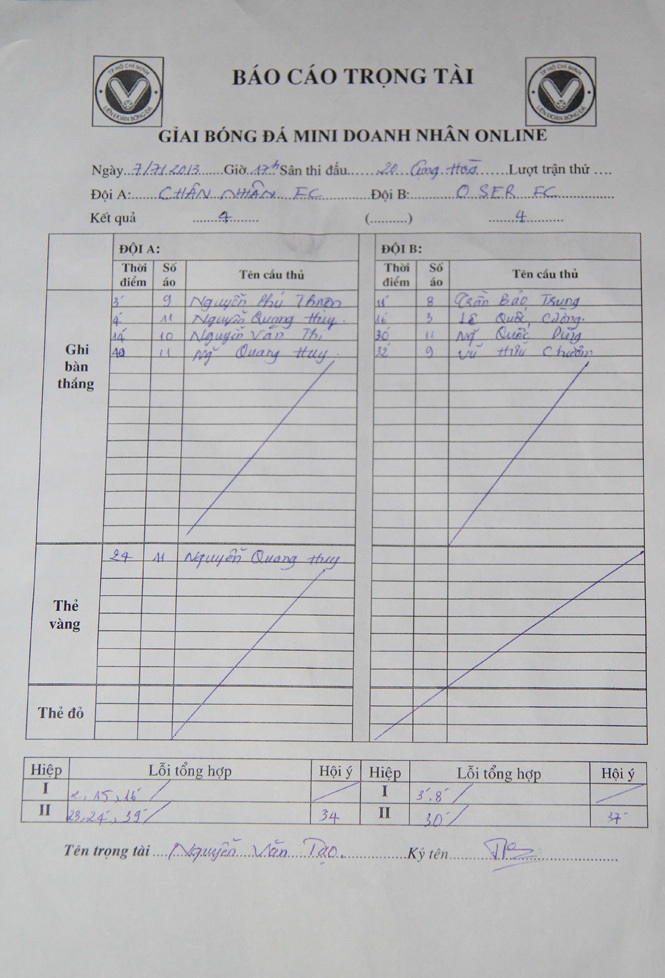 TP. HỒ CHÍ MINH
LIÊN ĐOÀN BÓNG ĐÁ
BÁO CÁO TRỌNG TÀI
TP. HỒ CHÍ MINH
LIÊN ĐOÀN BÓNG ĐÁ
GIẢI BÓNG ĐÁ MINI DOANH NHÂN ONLINE
Ngày 7/7/2013 Giờ 17h Sân thi đấu 20 Cộng Hoà Lượt trận thứ ....
Đội A: CHÂN NHÂN FC Đội B: O SER FC
Kết quả 4 (..........) 4
ĐỘI A: ĐỘI B:
Thời điểm Số áo Tên cầu thủ Thời điểm Số áo Tên cầu thủ
Ghi bàn thắng
3' 9 Nguyễn Phú 11' 8 Trần Bảo Trung
4' 11 Nguyễn Quang Huy 16' 3 Lê Quốc
14' 10 Nguyễn Văn Thi 30' 11 Ng Quốc Dũng
40 11 Ng Quang Huy 32' 9 Vũ Hữu
Thẻ vàng
24 11 Nguyễn Quang Huy
Thẻ đỏ
Hiệp Lỗi tổng hợp Hội ý Hiệp Lỗi tổng hợp Hội ý
I 2, 15, 16' I 3', 8'
II 23, 24', 39' 34 II 30' 37'
Tên trọng tài Nguyễn Văn Tạo. Ký tên